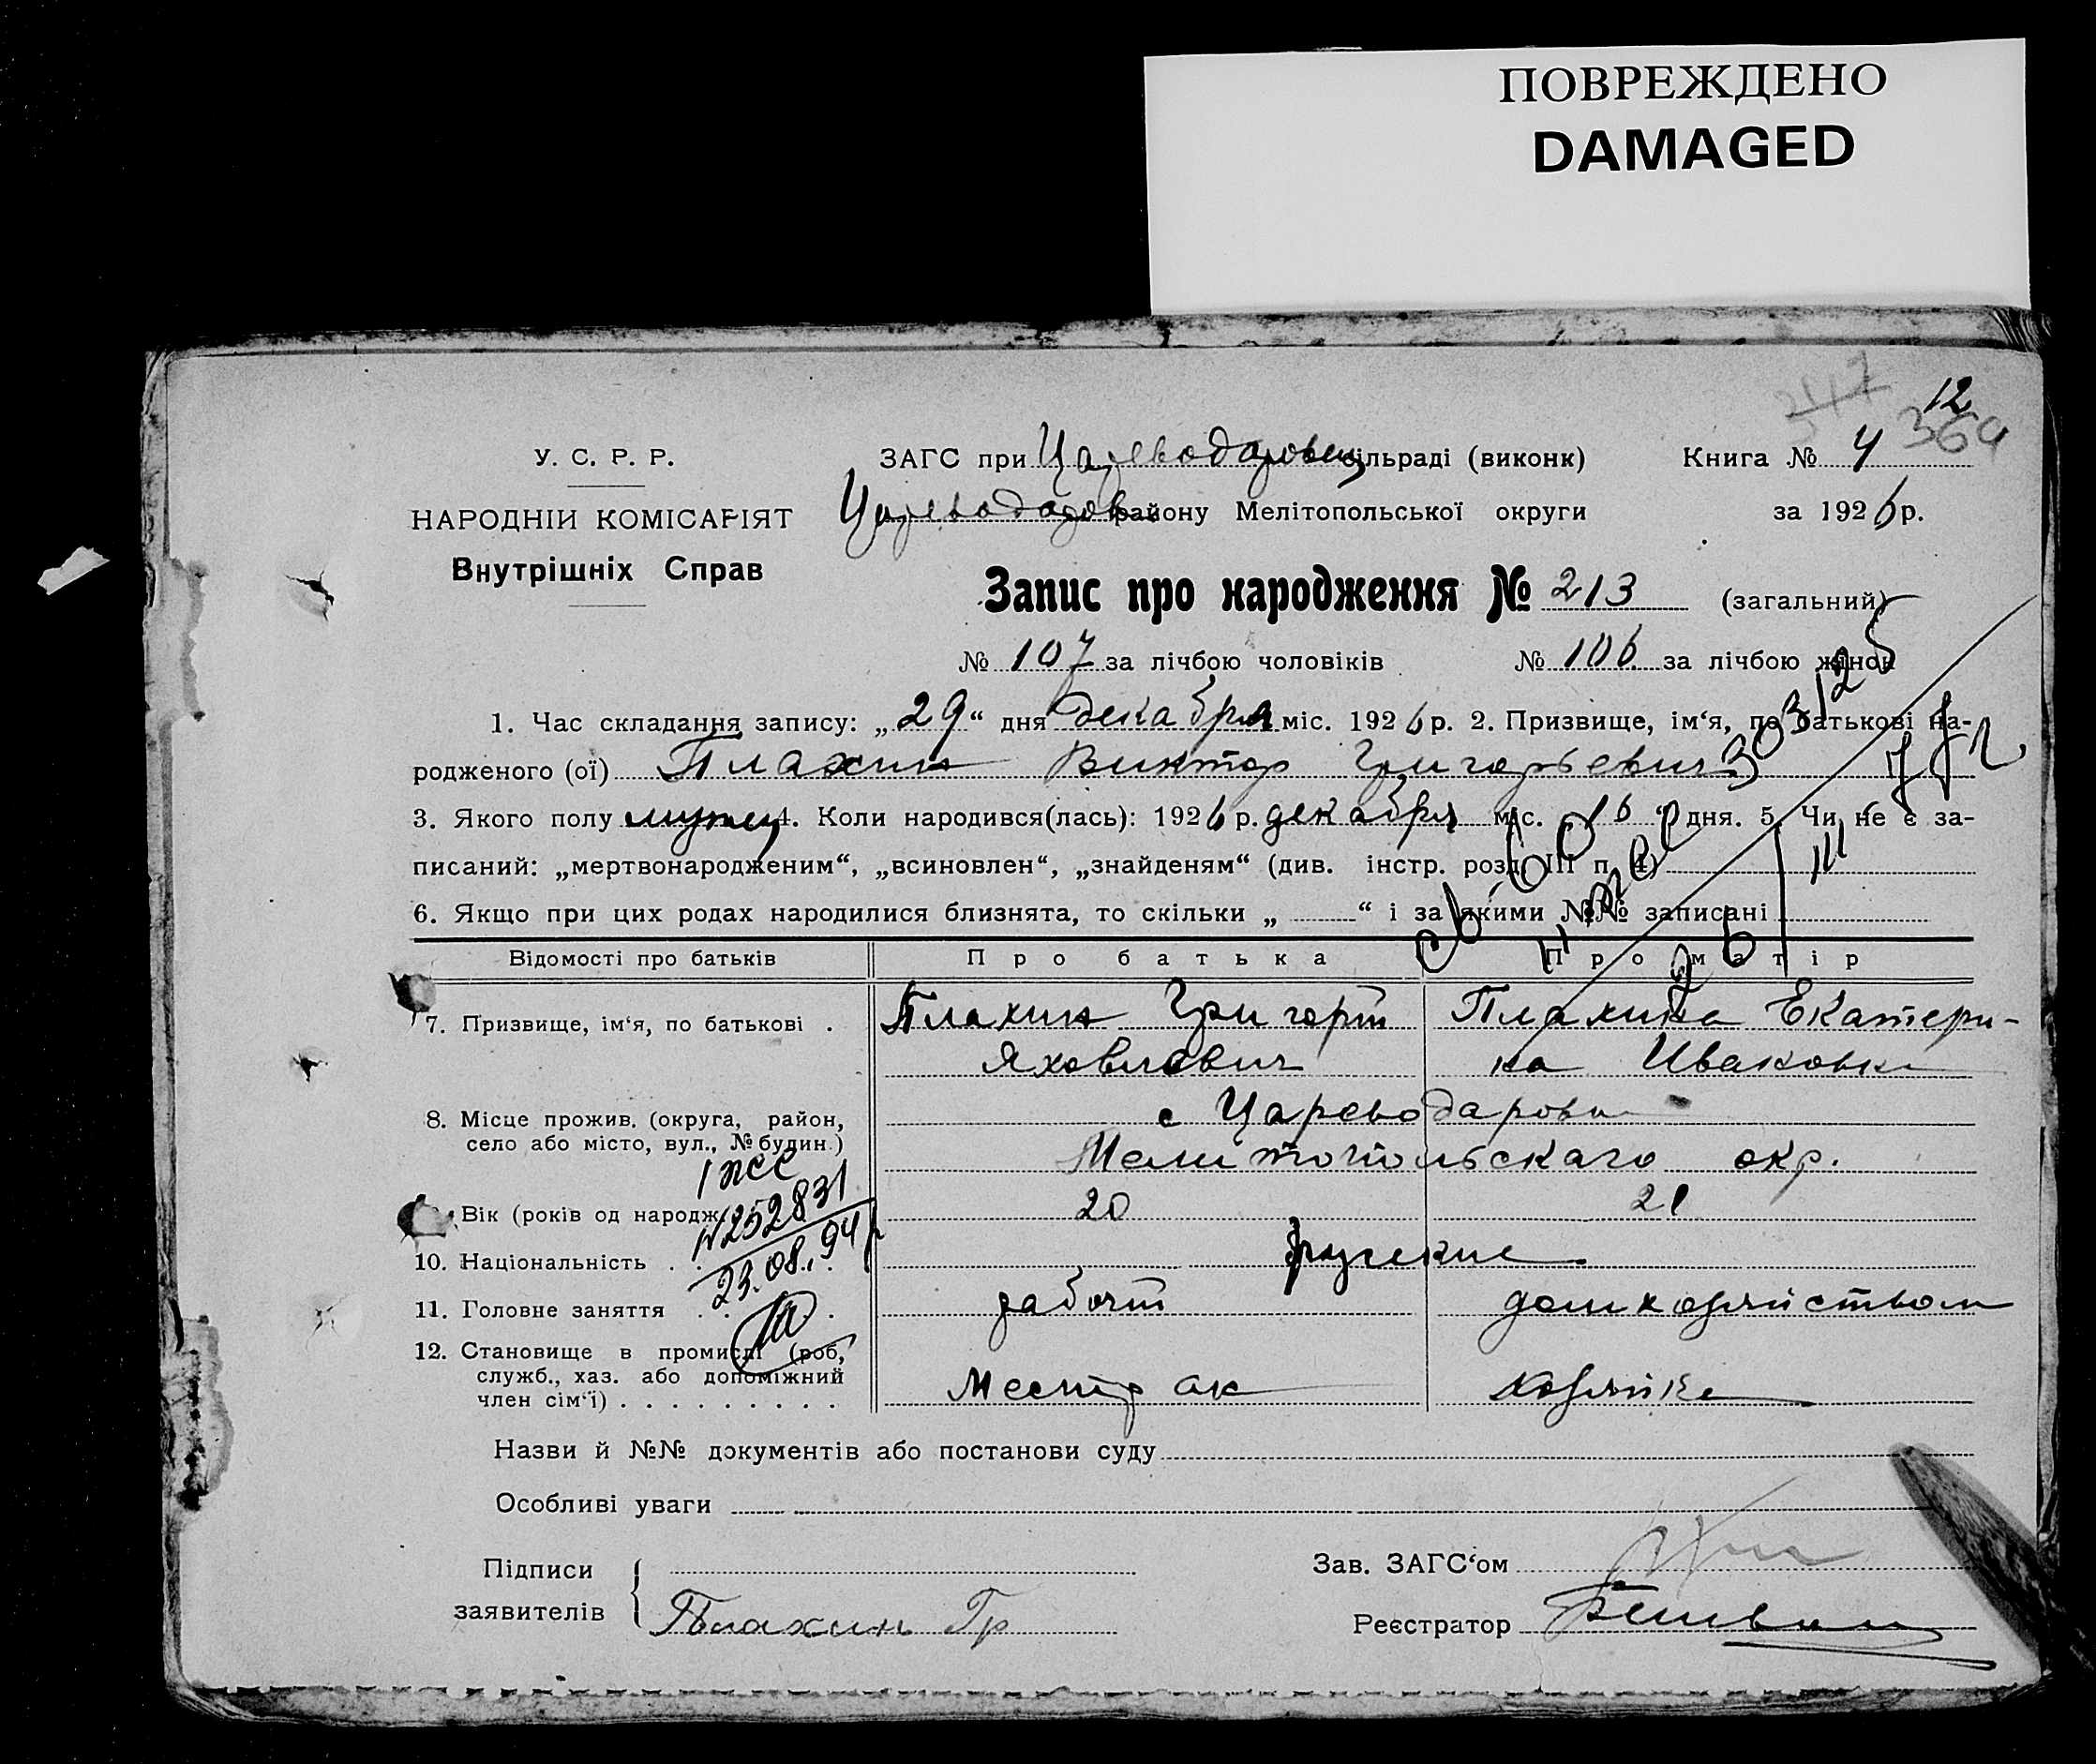 ПОВРЕЖДЕНО
DAMAGED
12
347 369
У. С. Р. Р.
НАРОДНІЙ КОМІСАРІЯТ
Внутрішніх Справ
ЗАГС при Цареводаровск сільраді (виконк)
Цареводаров району Мелітопольської округи
Книга № 4
за 1926 р.
Запис про народження № 213 (загальний)
№ 107 за лічбою чоловіків № 106 за лічбою жінок
1. Час складання запису: „29“ дня декабря міс. 1926 р. 2. Призвище, ім‘я, по батькові на-
родженого (ої) Плахин Виктор Григорьевич
3. Якого полу мужс 4. Коли народився(лась): 1926 р. декабря міс. „16“ дня. 5. Чи не є за-
писаний: „мертвонародженим“, „всиновлен“, „знайденям“ (див. інстр. розд. III п. 4)
6. Якщо при цих родах народилися близнята, то скільки „ “ і за якими №№ записані
Відомості про батьків Про батька Про матір
7. Призвище, ім‘я, по батькові . Плахин Григорий Плахина Екатери-
Яковлевич на Ивановна
8. Місце прожив. (округа, район, с Цареводаровка
село або місто, вул., № будин.) Мелитопольскаго окр.
Вік (років од народж. 20 21
10. Національність русские
11. Головне заняття рабочий домхозяйством
12. Становище в промислі (роб,
служб., хаз. або допоміжний
член сім‘ї) хозяйка
N252831
23.08.94 р
Назви й №№ документів або постанови суду
Особливі уваги
Підписи
заявителів Плахинь Гр
Зав. ЗАГС‘ом
Реєстратор